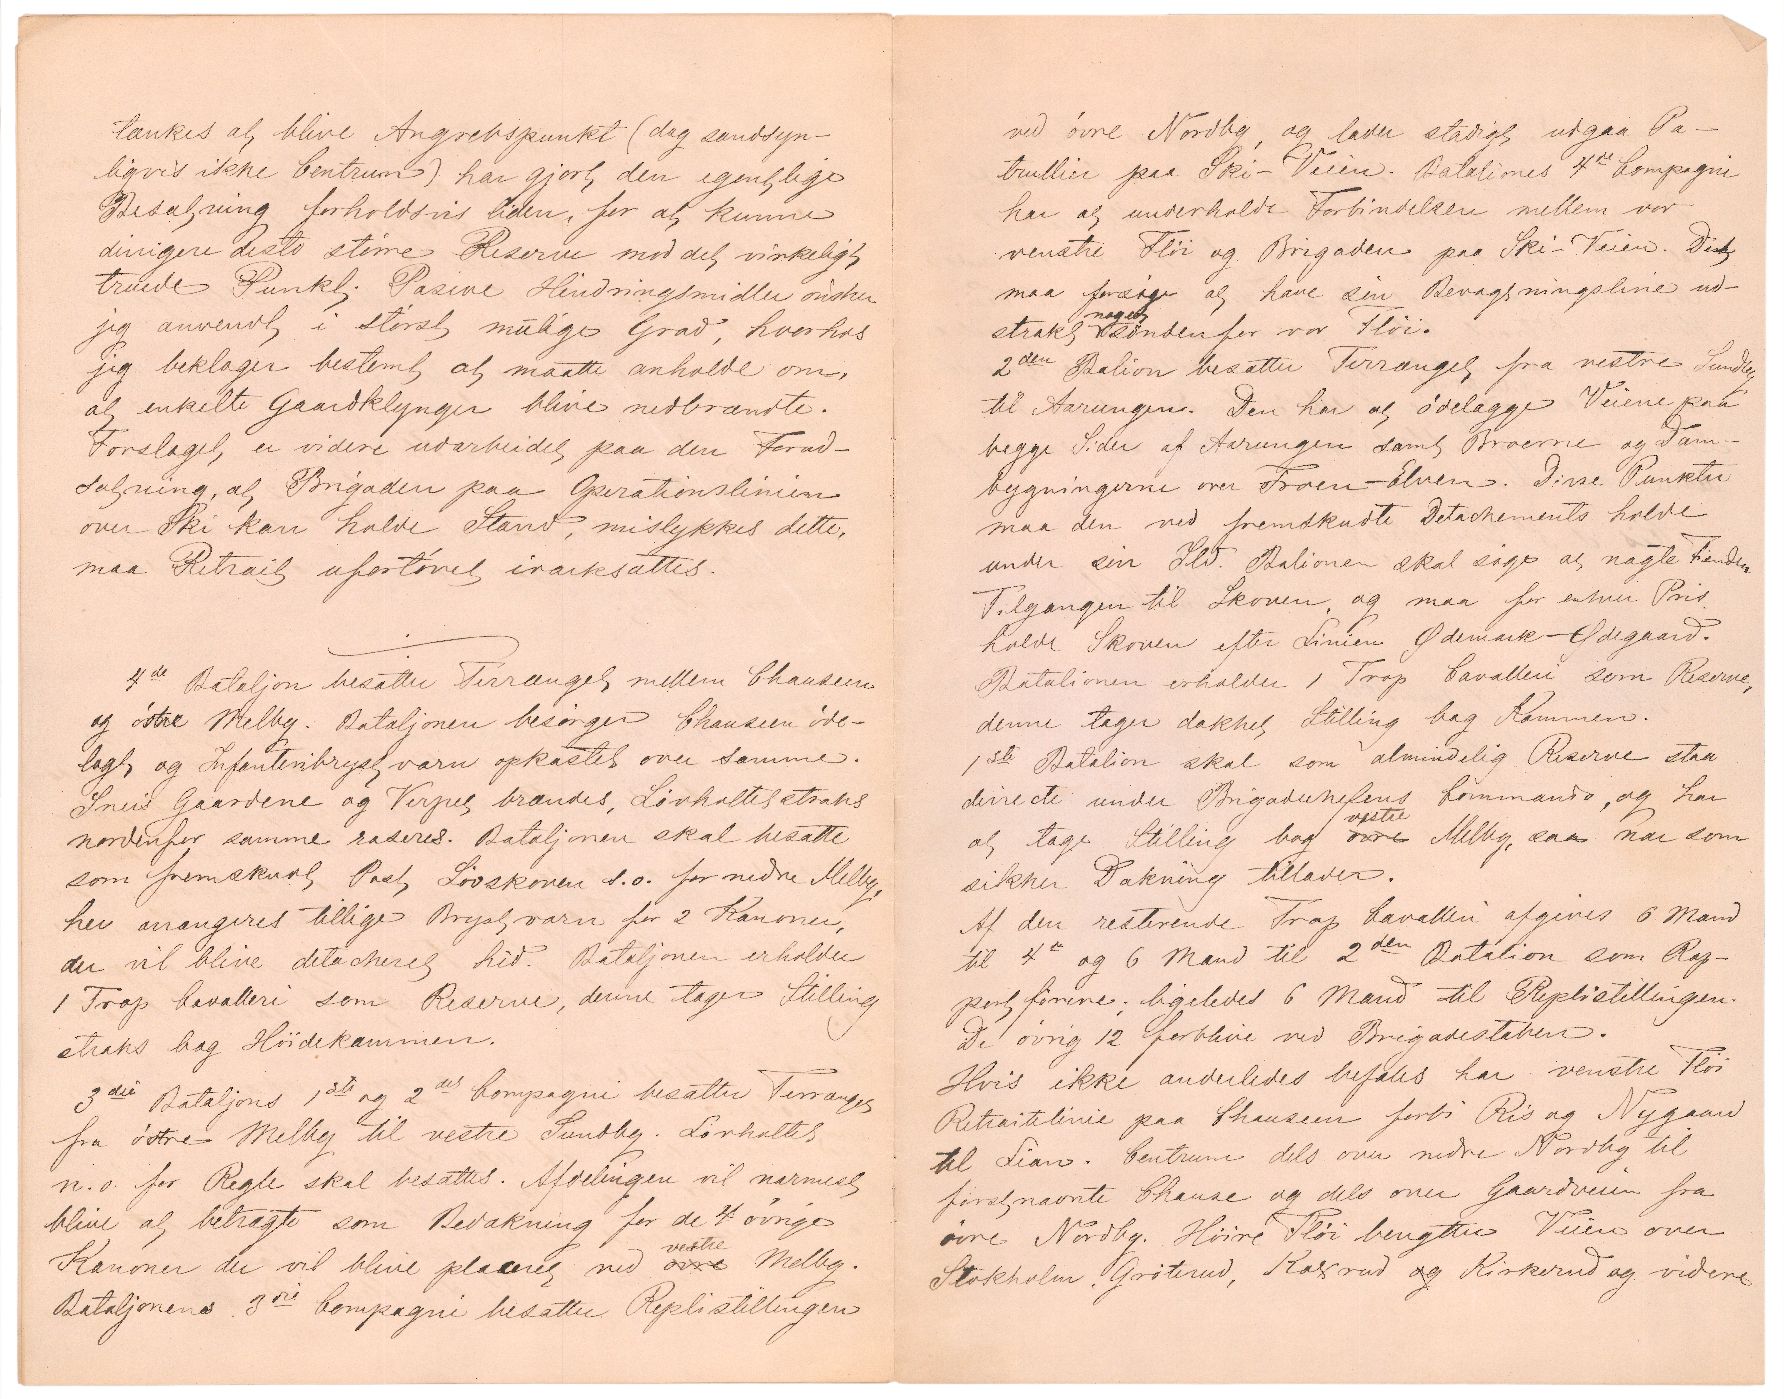 tænkes at blive Angrebspunkt (dog sandsyn-
ligvis ikke Centrum) har gjort den egentlige
Besætning forholdsvis liden, for at kunne
dirigere desto större Reserve mod det virkeligt
truede Punkt. Pasive Hindringsmidler önsker
jeg anvendt i störst mulige Grad, hvorhos
jeg beklager bestemt at maatte anholde om,
at enkelte Gaardklynger blive nedbrændte.
Forslaget er videre udarbeidet paa den Forud-
sætning, at Brigaden paa Operationslinien
over Ski kan holde Stand, mislykkes dette,
maa Retrait ufortövet iværksættes.
4de Bataljon besætter Terrænget mellem Chauseen
og östre Melby. Bataljonen besörger Chauseen öde-
lagt og Infanteribrystværn opkastet over samme.
Sneis Gaardene og Verpet brændes, Lövholtet straks
nordenfor samme raseres. Bataljonen skal besætte
som fremskudt Post Lövskoven s.o. for nedre Melby,
her arrangeres tillige Brystværn for 2 Kanoner,
der vil blive detacheret hid. Bataljonen erholder
1 Trop Cavalleri som Reserve, denne tager Stilling
straks bag Höidekammen.
3die Bataljons 1ste og 2det Compagni besætter Terrænget
fra östre Melby til vestre Sundby. Lövholtet
n.o. for Regle skal besættes. Afdelingen vil nærmest
blive at betragte som Bedækning for de 4 övrige
Kanoner der vil blive placeret ved övre vestre Melby.
Bataljonens 3die Compagni besætter Replistillingen
ved övre Nordby, og lader stadigt udgaa Pa-
truller paa Ski-Veien. Batalionens 4de Compagni
har at underholde Forbindelsen mellem vor
venstre Flöi og Brigaden paa Ski-Veien. Det
maa forsöge at have sin Bevogtningslinie ud-
strakt noget söndenfor vor Flöi.
2den Bation besætter Terrænget fra vestre Sundby
til Aarungen. Den har at ödelægge Veiene paa
begge Sider af Aarungen samt Broerne og Dam-
bygningerne over Froen-Elven. Disse Punkter
maa den ved fremskudte Detachements holde
under sin Ild. Bationen skal söge at nægte Fienden
Tilgangen til Skoven, og maa for enhver Pris
holde Skoven efter Linien Ødemark-Ødegaard.
Batalionen erholder 1 Trop Cavalleri som Reserve,
denne tager dækket Stilling bag Kammen.
1ste Batalion skal som almindelig Reserve staa
directe under Brigadechefens Commando, og har
at tage Stilling bag övre vestre Melby, saa nær som
sikker Dækning tillader.
Af den resterende Trop Cavalleri afgives 6 Mand
til 4de og 6 Mand til 2den Batalion som Rap-
portförere; ligeledes 6 Mand til Replistillingen.
De övrig 12 forblive ved Brigadestaben.
Hvis ikke anderledes befales har venstre Flöi
Retraitelinie paa Chauseen forbi Ris og Nygaard
til Lian. Centrum dels over nedre Nordby til
förstnævnte Chause og dels over Gaardveien fra
övre Nordby. Höire Flöi benytter Veien over
Stokholm, Gröterud, Kolsrud og Kirkerud og videre